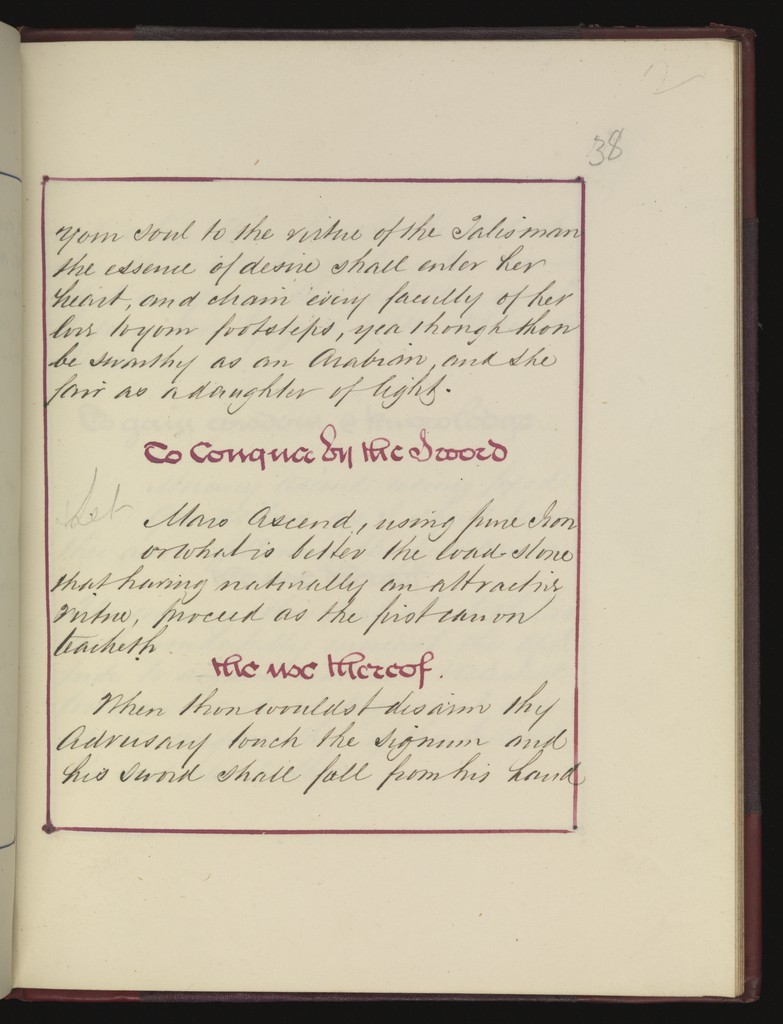 38
your soul to the virtue of the Talisman
the essence of desire shall enter her
heart, and chain every faculty of her
love to your footsteps, yea though thou
be swarthy as an Arabian, and she
fair as a daughter of light.
To Conquer by the Sword
Let
Mars Ascend, using pure Iron
or what is better the load-stone
that having naturally an attractive
virtue, proceed as the first canon
teacheth
the use thereof.
When thou wouldst disarm thy
Adversary touch the signum and
his sword shall fall from his hand